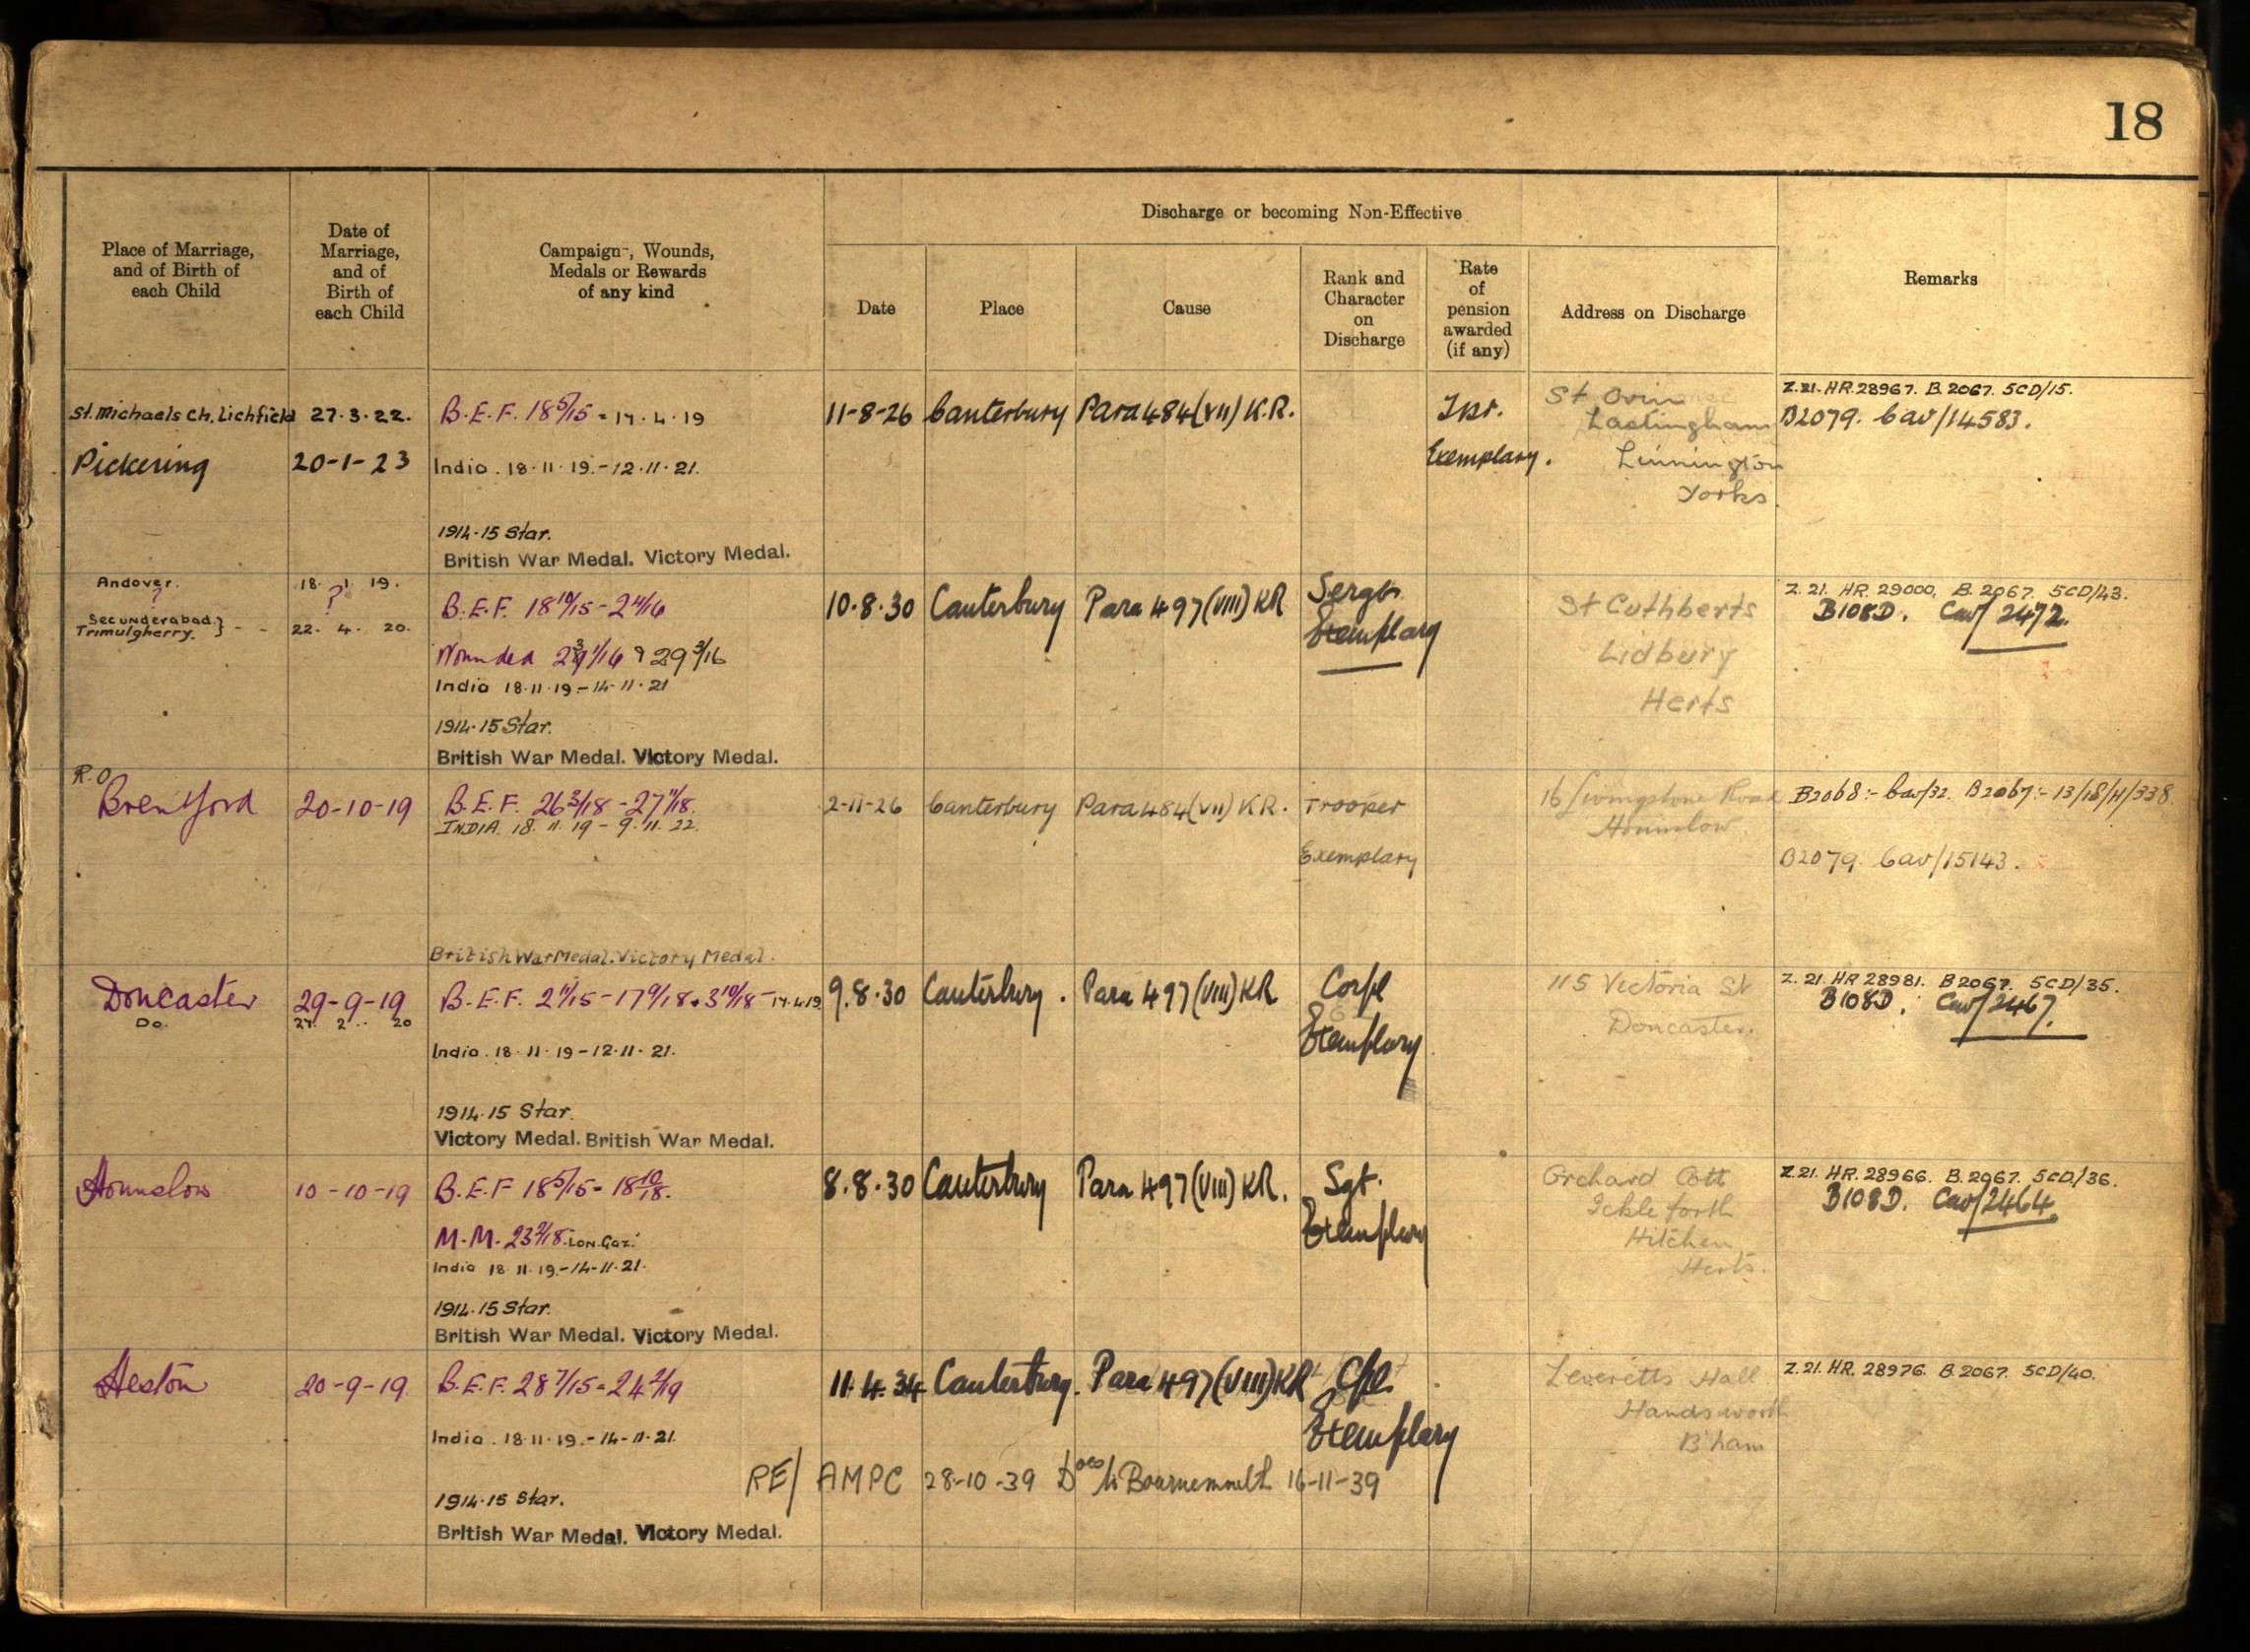 18
Place of Marriage, and of Birth of each Child
Date of Marriage, and of Birth of each Child
Campaigns, Wounds, Medals or Rewards of any kind
Discharge or becoming Non-Effective
Date
Place
Cause
Rank and Character on Discharge
Rate of pension awarded (if any)
Address on Discharge
Remarks
St. Michaels Ch. Lichfield 27.3.22. B.E.F. 18 5/15 - 17.4.19 11-8-26 Canterbury Para 484 (VII) K.R. Tpr. St Z.21. HR.28967. B.2067. 5CD/15.
Lastingham B2079. Cav/14583.
Pickering 20-1-23 India. 18.11.19.-12.11.21. Exemplary.
Yorks
1914-15 Star.
British War Medal. Victory Medal.
Andover. 18. 1. 19. Z.21. HR. 29000. B.2067. 5CD/43.
? ? B.E.F. 18 10/15 - 2 4/16 10.8.30 Canterbury Para 497 (VIII) KR Sergt. St Cuthberts B108D. Cav/2472.
Secunderabad } - -
Trimulgherry. 22. 4. 20. Exemplary
Wounded & 29 3/16 Lidbury
India 18.11.19-14-11.21
Herts
1914-15 Star.
British War Medal. Victory Medal.
R.O
Brentford 20-10-19 B.E.F. 26 3/18 - 27 11/18. 2-11-26 Canterbury Para 484 (VII) KR. Trooper 16 Livingstone Road B2068:- Cav/32. B2067:- 13/18/H/338
INDIA. 18. 11. 19 - 9. 11. 22. Hounslow.
Exemplary B2079. Cav/15143.
British War Medal. Victory Medal.
Doncaster 29-9-19 B.E.F. 2 11/15 - 17 9/18 & 3 10/18 - 17.4.19. 9.8.30 Canterbury. Para 497 (VIII) KR Corpl 115 Victoria St Z.21. HR 28981. B2067. 5CD/35.
Do. 27. 2. 20 B108D. Cav/2467.
Doncaster.
India. 18.11.19-12.11.21. Exemplary
1914.15 Star.
Victory Medal. British War Medal.
Hounslow 10-10-19 B.E.F 18 5/15 - 18 10/18. 8.8.30 Canterbury Para 497 (VIII) KR. Sgt. Orchard Cott Z.21. HR. 28966. B.2067. 5CD/36.
Ickleforth B108D. Cav/2464.
M.M. 23 2/18. LON. Gaz. Exemplary Hitchen
India 18.11.19.-14-11.21. Herts.
1914.15 Star.
British War Medal. Victory Medal.
Heston 20-9-19 B.E.F. 28 7/15 - 24 2/19 11.4.34 Canterbury. Para 497 (VIII) KR Cpl. Leveretts Hall Z.21. HR. 28976. B.2067. 5CD/40.
Handsworth
India. 18.11.19.-14-11-21. Exemplary B'ham
RE/ AMPC 28-10-39 Bournemouth 16-11-39
1914-15 Star.
British War Medal. Victory Medal.